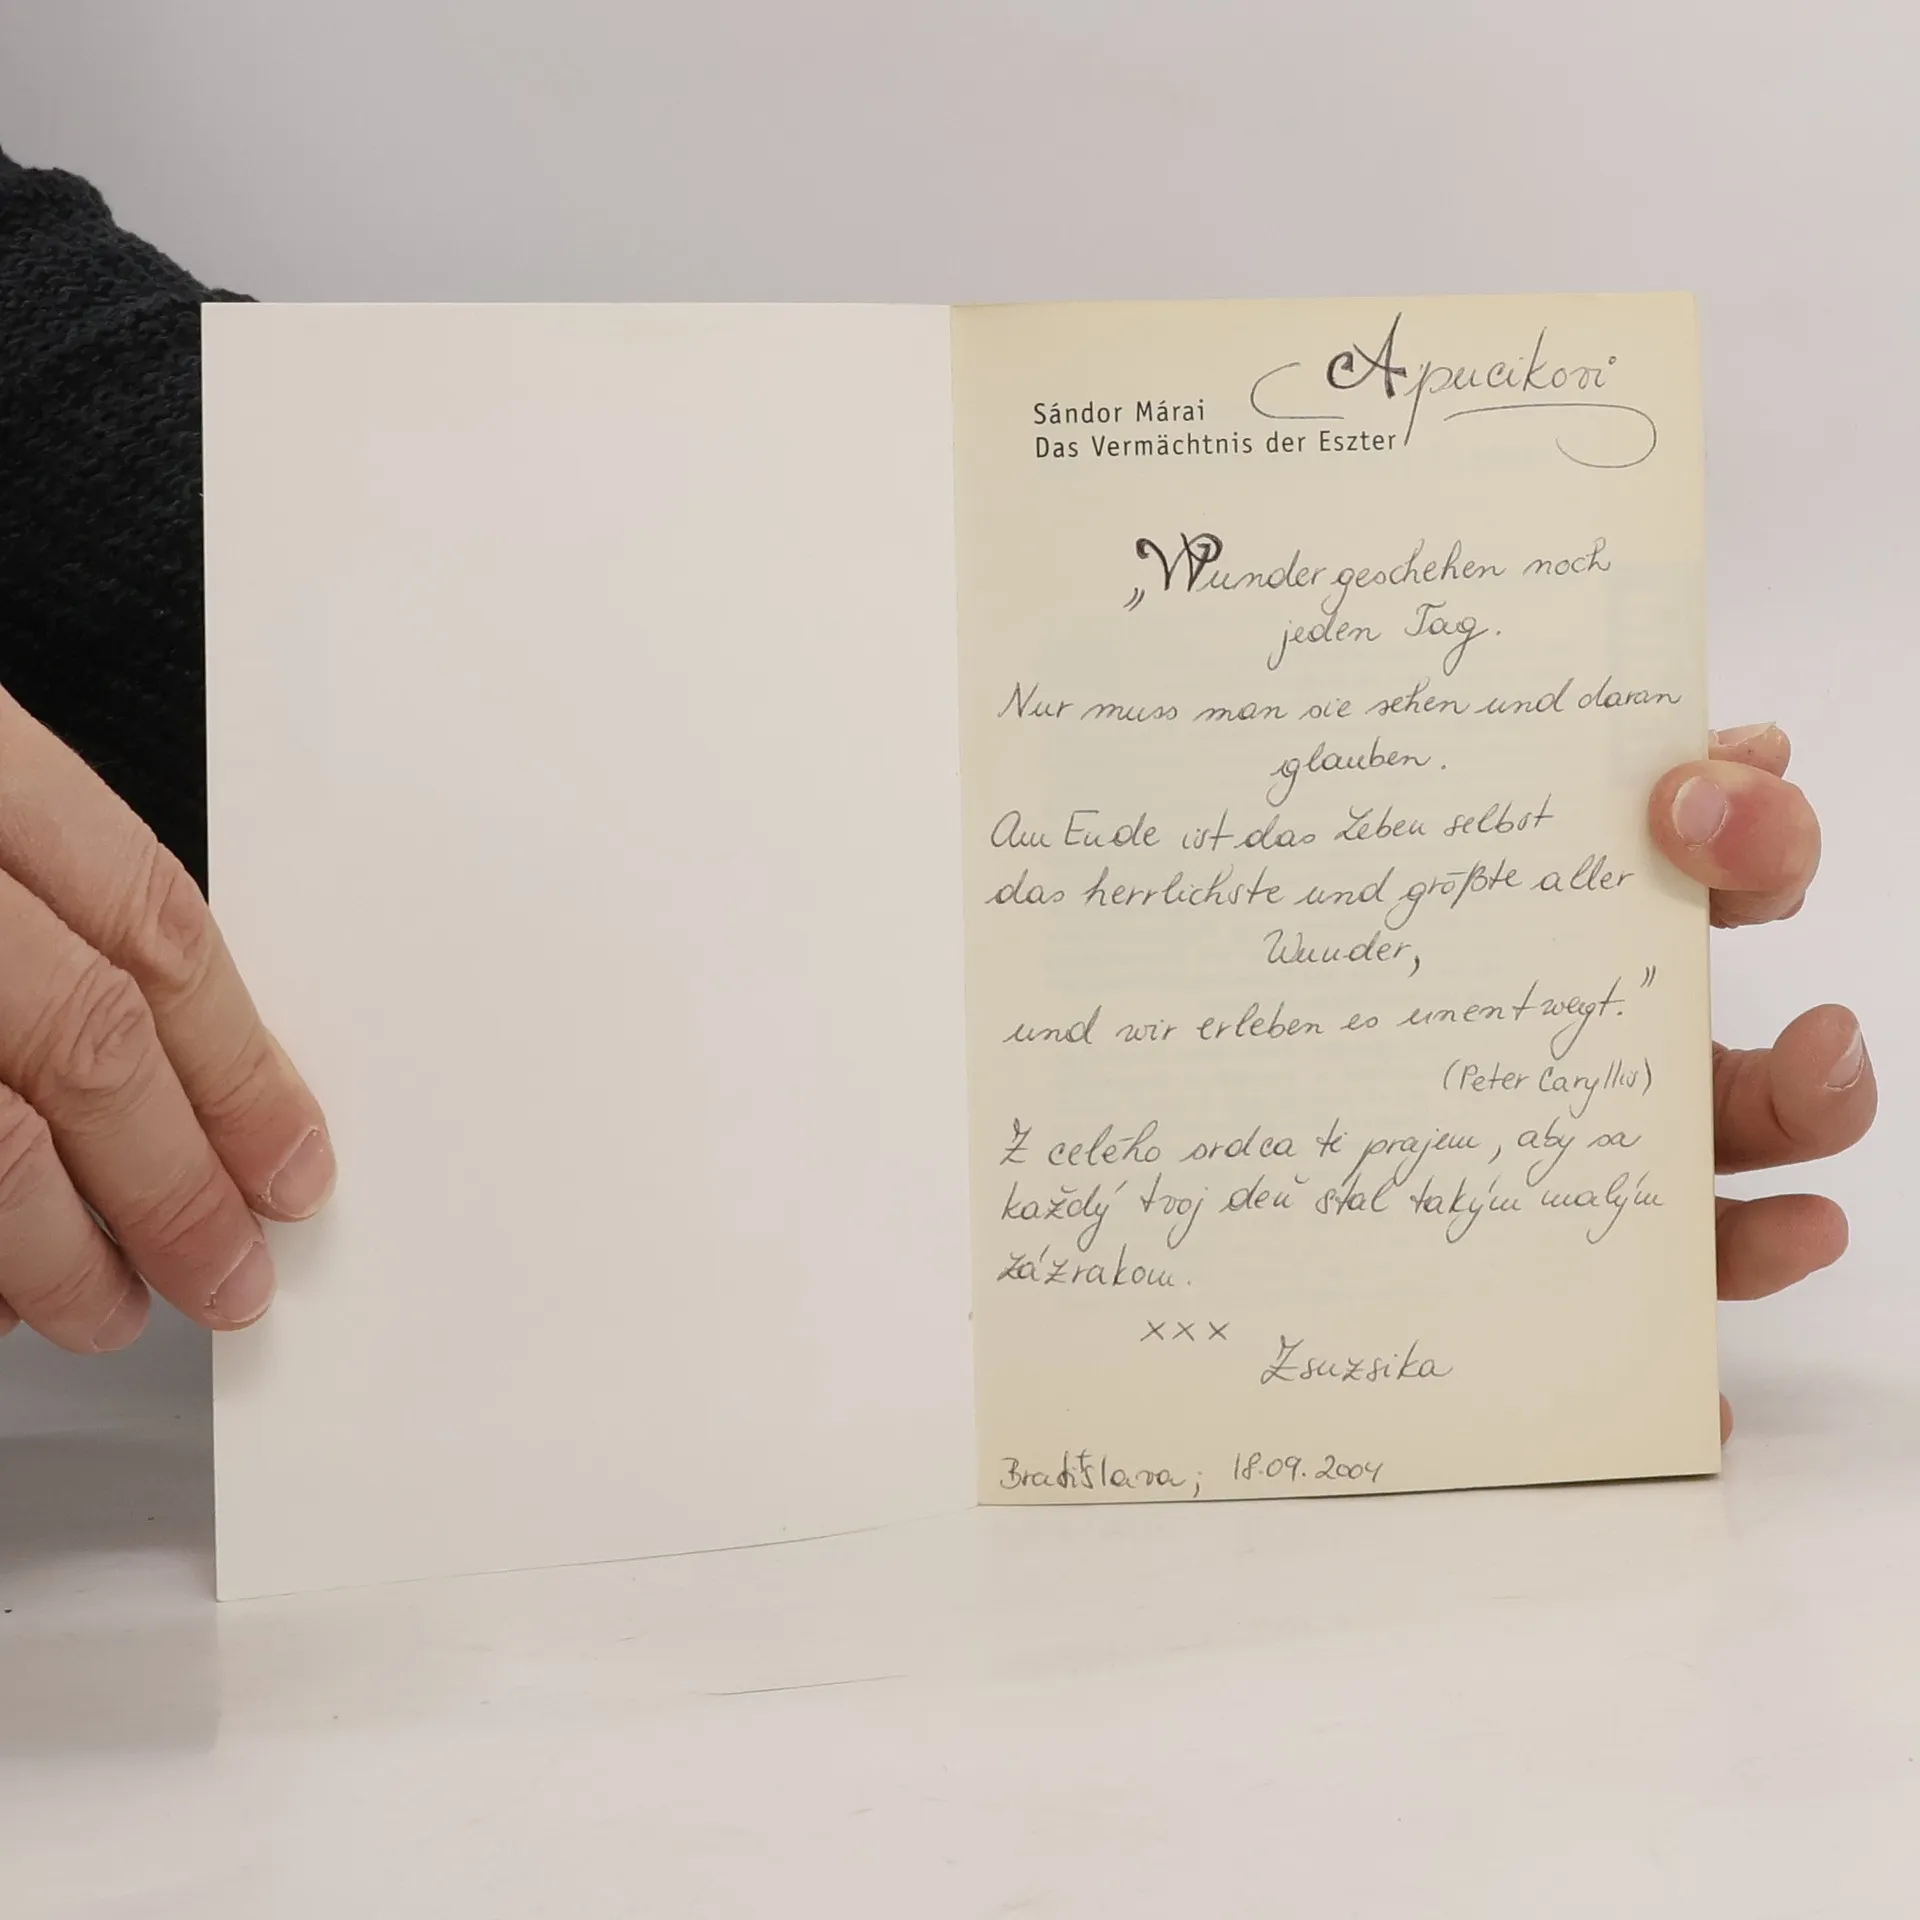 Apucikovi
Sándor Márai
Das Vermächtnis der Eszter
„Wunder geschehen noch
jeden Tag.
Nur muss man sie sehen und daran
glauben.
Am Ende ist das Leben selbst
das herrlichste und größte aller
Wunder,
und wir erleben es unentwegt."
(Peter Caryllis)
Z celého srdca ti prajem, aby sa
každý tvoj deň stal takým malým
zázrakom.
xxx
Zsuzsika
Bratislava, 18.09.2004